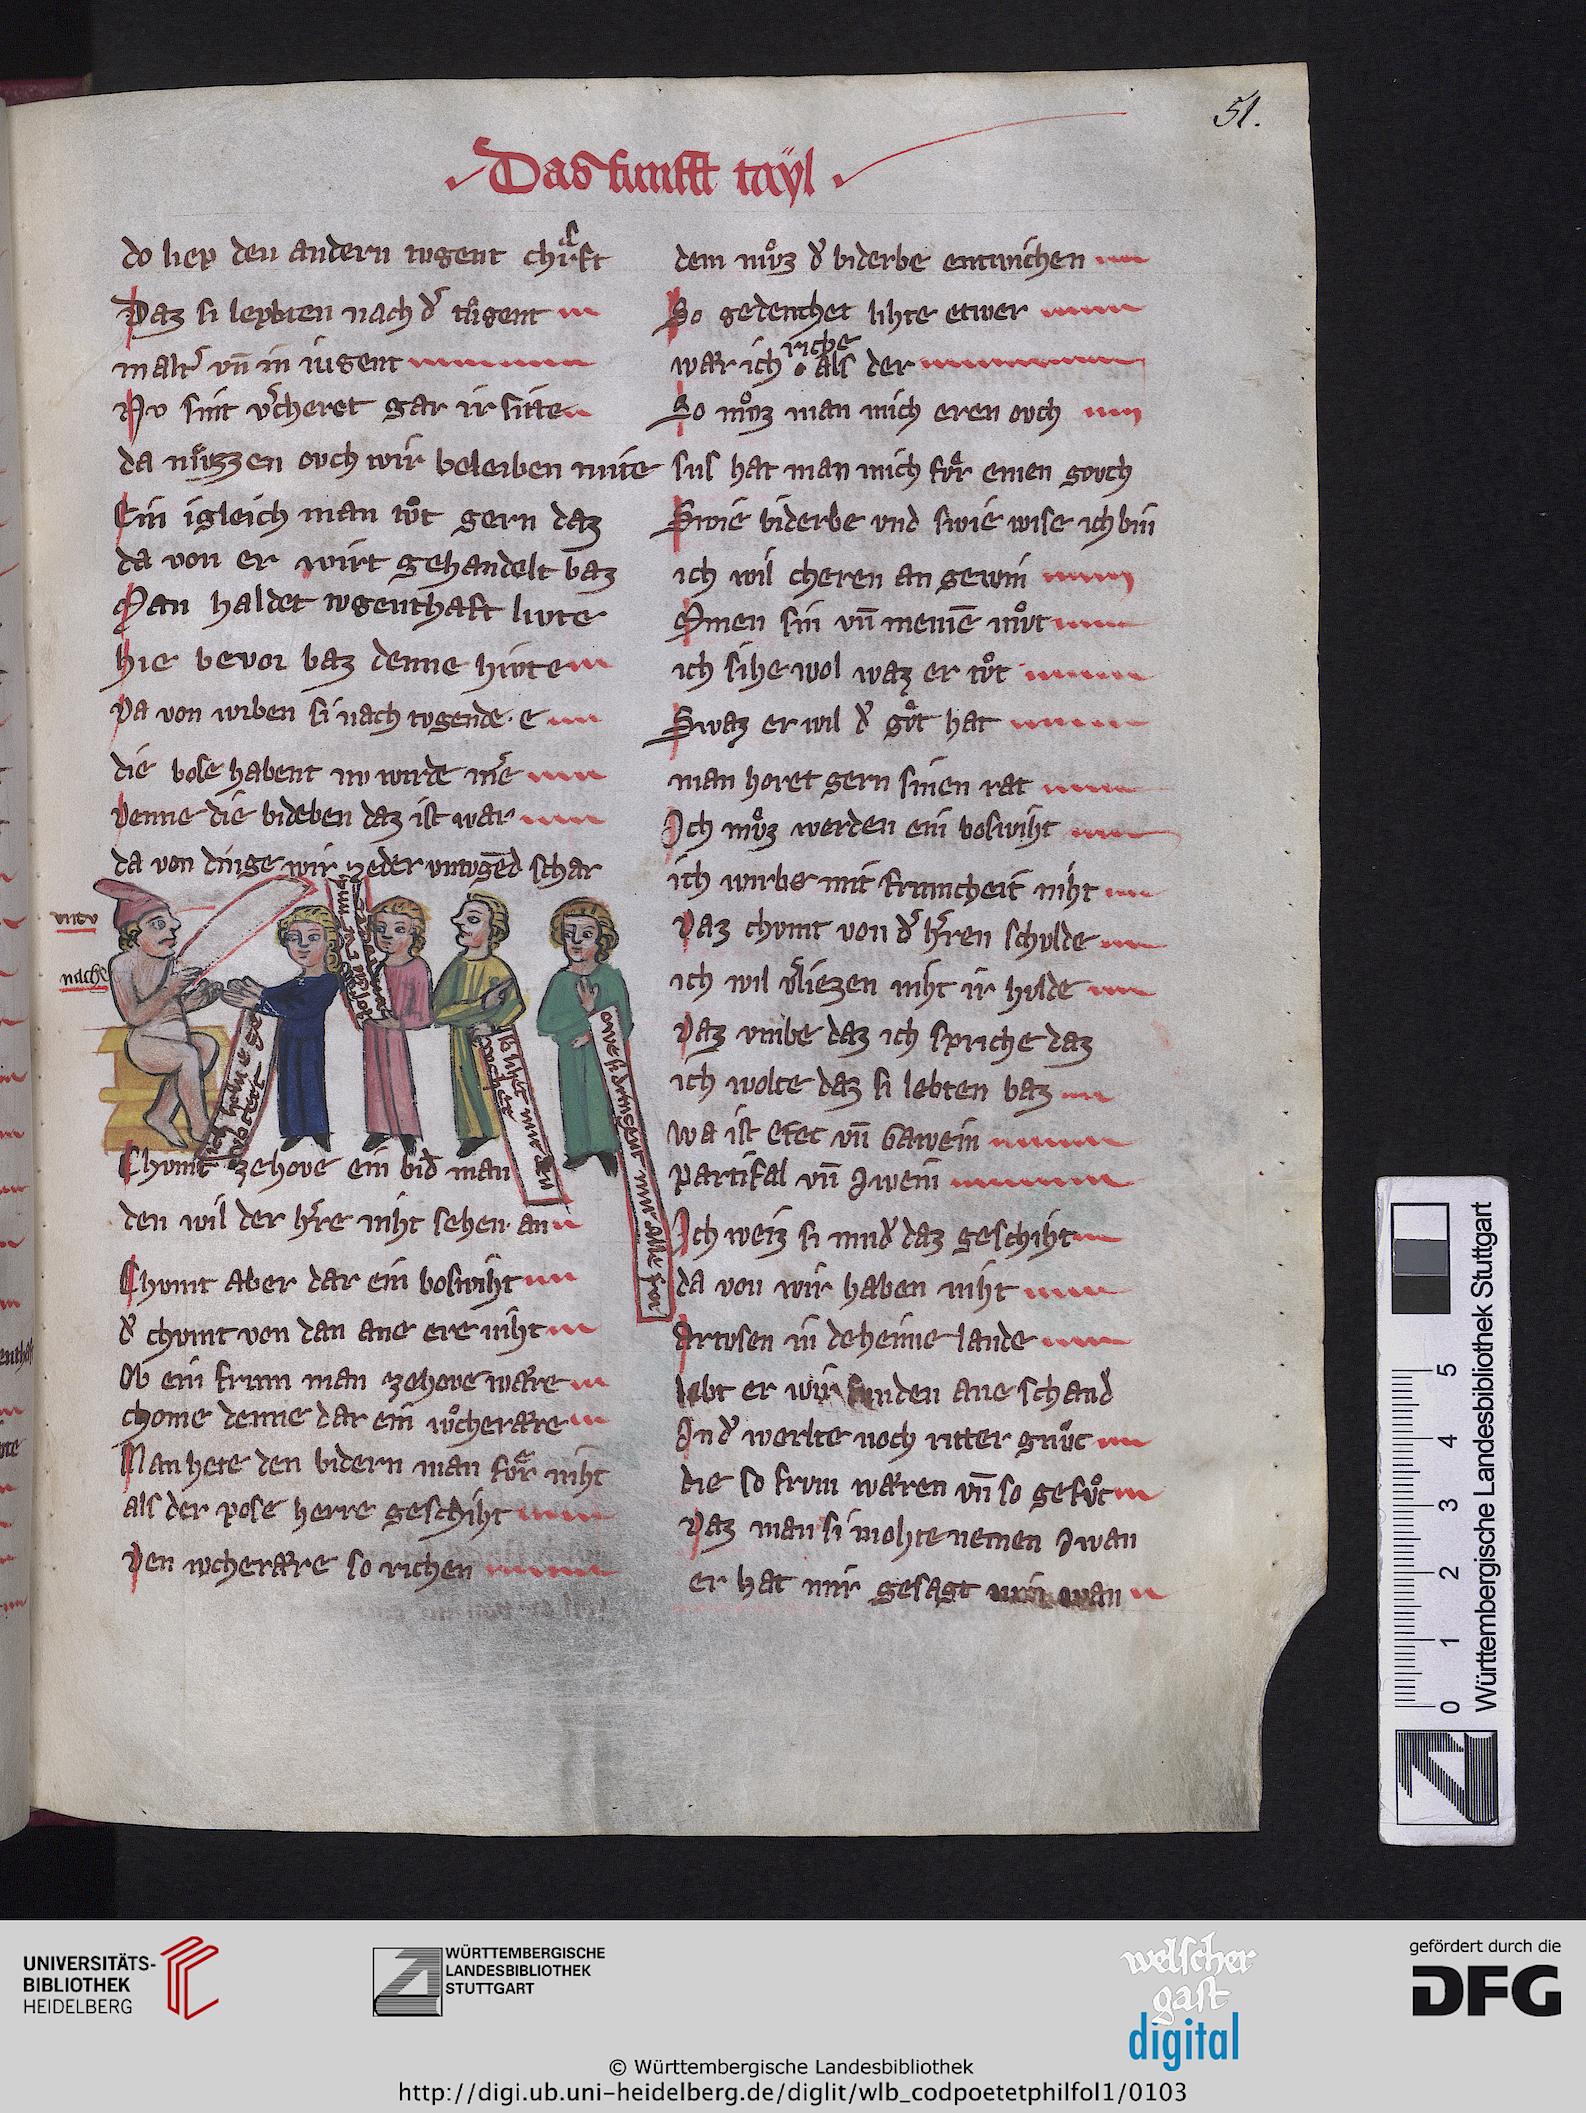 51.
Das funfft tayl
do liep den andern tvgent chraͤft
Daz si lepten nach dˀ tvͤgent
in altˀ vn̄ in iugent
Nv sint vˀcheret gar ir sitte
da mvͤzzen ovch wir beleiben mite
Ein igleich man tvͦt gern daz
da von er wirt gehandelt baz
Man haldet tvgenthaft livte
hie bevor baz denne hivte
Da von wrben si nach tvgende · e
die bose habent nv wirde mˀe
Denne die bideben daz ist war
da von dinge wir zeder vntvgēd schar
vntv
nalche
Ich han e ge
ovwe si dringent mir alle for
Chvmt zehove ein bidˀ man
den wil der hˀre niht sehen · an
Chvmt aber dar ein boswiht
dˀ chvmt von dan ane ere niht
Ob ein frum man zehove wære
chome denne dar ein wͦcherære
Man hete den bidern man fvͤr niht
als der pose herre geschiht
Den wcherære so richen
dem mvͦz dˀ biderbe entwichen
So gedenchet lihte etwer
wær ich riche als der
So mvͦz man mich eren ovch
sus hat man mich fvͤr einen govch
Swie biderbe vnd swie wise ich bin
ich wil cheren an gewin
Minen sin vn̄ meinē mvͦt
ich sihe wol waz er tvͦt
Swaz er wil dˀ gvͦt hat
man horet gern sinen rat
Ich mvͦz werden ein boswiht
ich wirbe mit frumcheit niht
Daz chvmt von dˀ hˀren schvlde
ich wil vˀliezen niht ir hvlde
Daz vmbe daz ich spriche daz
ich wolte daz si lebten baz
wa ist erec vn̄ Gawein
partifal vn̄ Iwein
Ich weiz si nindˀ daz geschiht
da von wir haben niht
Artvsen in deheime lande
lebt er wir funden ane schand
In dˀ werlte noch ritter gnvͦc
die so frvm wæren vn̄ so gefvͦc
Daz man si mohte nemen Iwan
er hat mir gesagt
UNIVERSITÄTS-
BIBLIOTHEK
HEIDELBERG
WÜRTTEMBERGISCHE
LANDESBIBLIOTHEK
STUTTGART
welscher
gast
digital
gefördert durch die
DFG
© Württembergische Landesbibliothek
http://digi.ub.uni-heidelberg.de/diglit/wlb_codpoetetphilfol1/0103
0 1 2 3 4 5
Württembergische Landesbibliothek Stuttgart